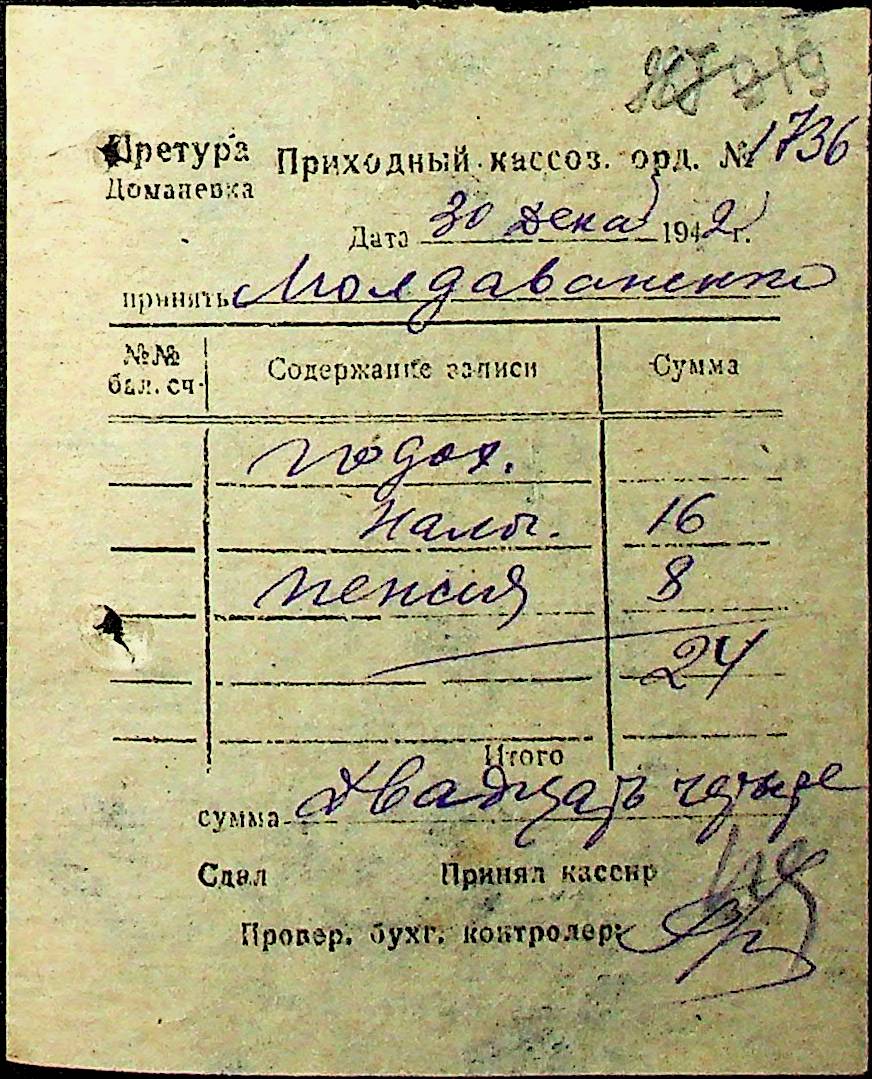 219
Претура Приходный кассов. орд. № 1736
Доманевка
Дата 30 Дека 1942 г.
принять Молдаваненко
№№ бал. сч. Содержание записи Сумма
подох.
нало. 16
пенсия 8
24
Итого
сумма Двадцать четыре
Сдал Принял кассир
Провер. бухг. контролер: